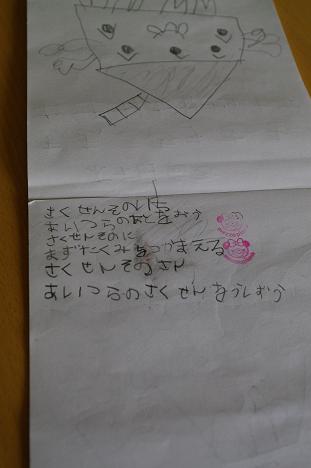 さくせんそのいち
あいつらのあとをみよう
さくせんそのに
まずたくみをつかまえる
さくせんそのさん
あいつらのさくせんをうしおう